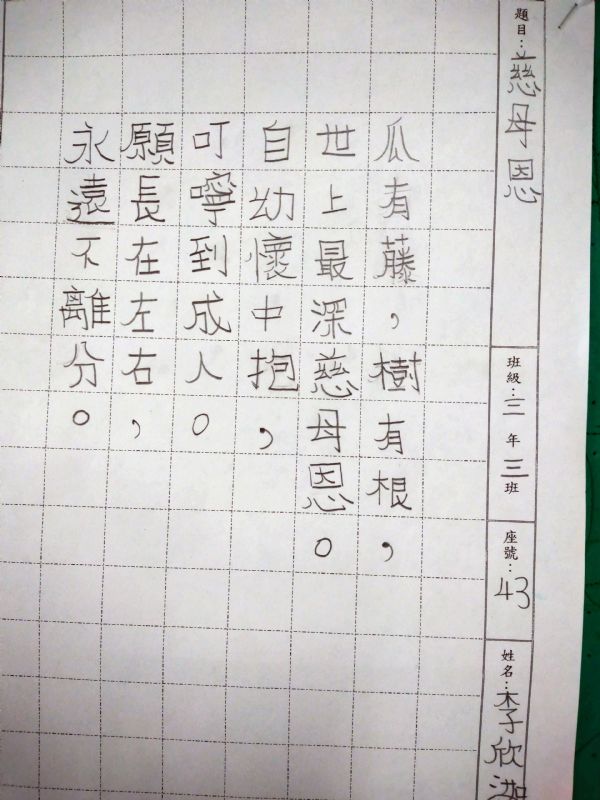 題目：慈母恩
班級：三年三班
座號：43
姓名：李欣
瓜有藤，樹有根，
世上最深慈母恩。
自幼懷中抱，
叮嚀到成人。
願長在左右，
永遠不離分。